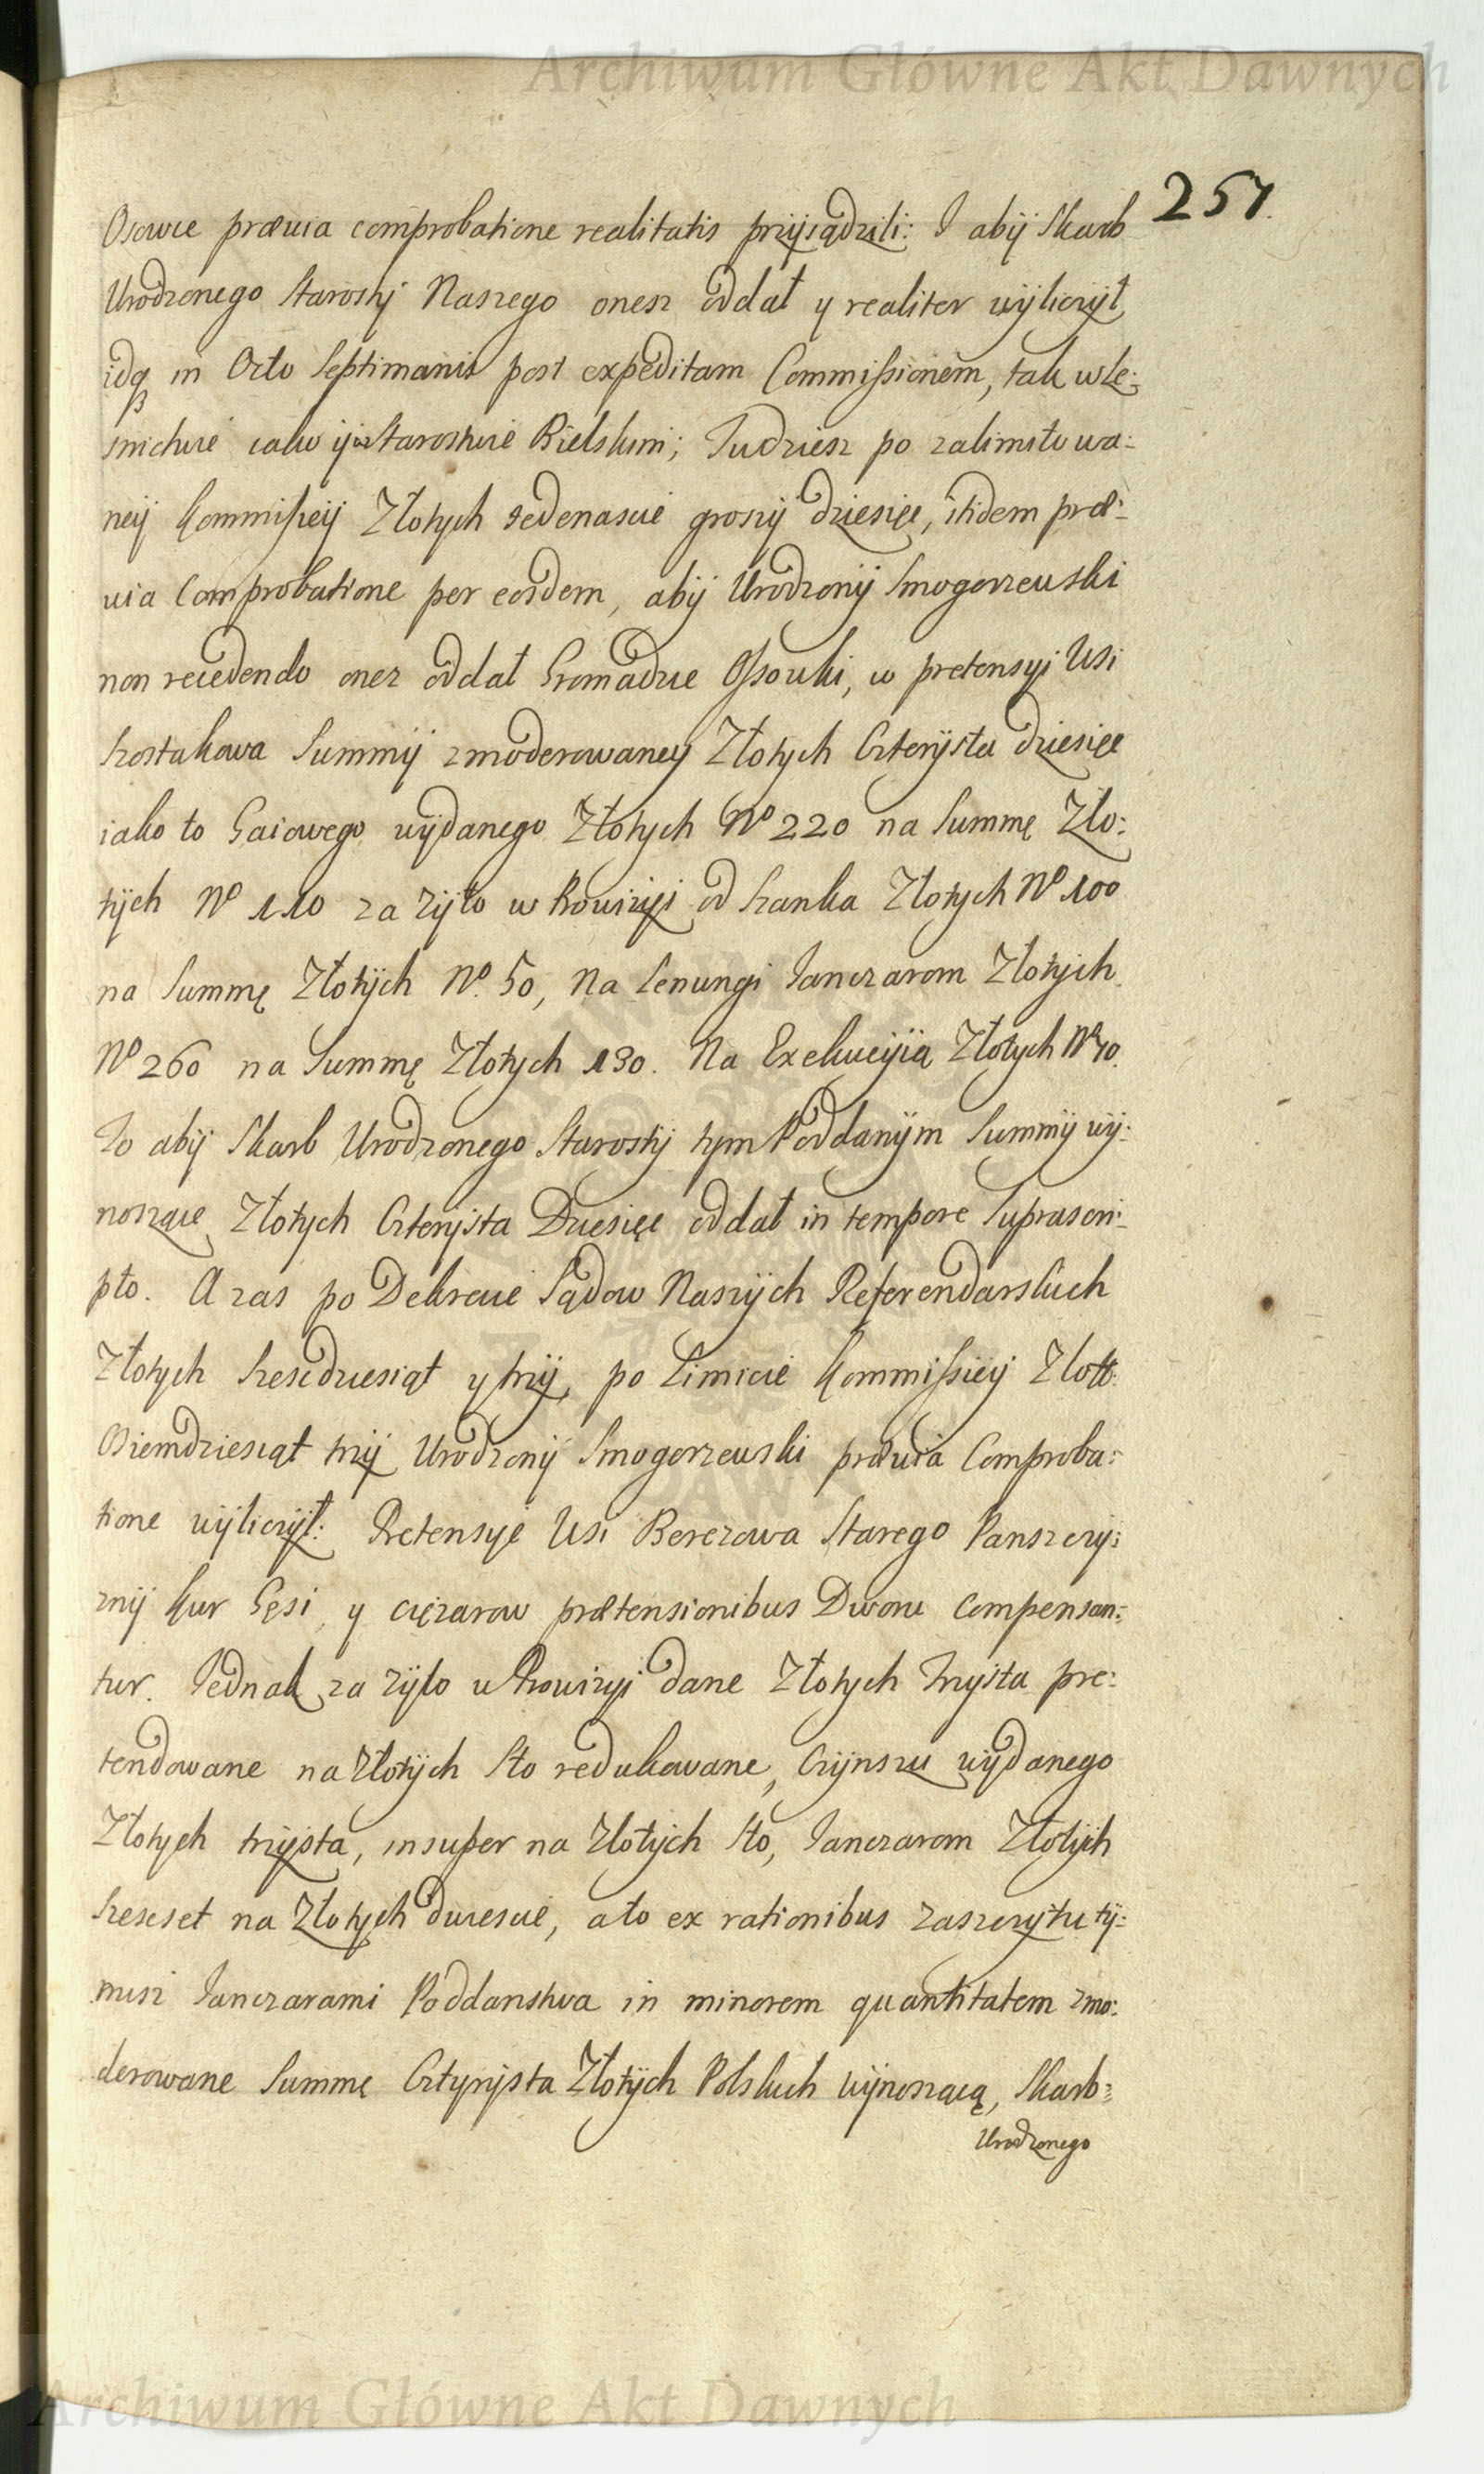 Archiwum Główne Akt Dawnych
257.
Osowce prævia comprobatione realitatis przysądzili: I aby Skarb
Urodzonego Starosty Naszego onesz oddał y realiter wyliczył
idq in Octo Septimanis post expeditam Commissionem, tak w Le:
snictwie iako y w Starostwie Bielskim; Tudziesz po zalimitowa:
ney Kommissyey Złotych Iedenascie groszy dziesięc, itidem præ:
via Comprobatione per eosdem, aby Urodzony Smogorzewski
non recedendo onez oddał Gromadzie Ossowki, w pretensyi Wsi
Szostakowa Summy zmoderowaney Złotych Czterysta dziesięc
iako to Gaiowego wydanego Złotych No 220 na Summę Zło:
tych No 110 za żyto w Prowizyi od Szanka Złotych No 100
na Summę Złotych No. 50, Na Lenungi Ianczarom Złotych
No 260 na Summę Złotych 130. Na Exekucyią Złotych No 70.
To aby Skarb Urodzonego Starosty tym Poddanym Summy wy:
noszące Złotych Czterysta Dziesięc oddał in tempore suprascri:
pto. A zas po Dekrecie Sądow Naszych Referendarskich
Złotych szescdziesiąt y trzy, po Limicie Kommissiey Złott:
Osiemdziesiąt trzy Urodzony Smogorzewski prævia Comproba:
tione wyliczył: Pretensye Wsi Berezowa Starego Panszczy:
zny Kur Gęsi, y cięzarow prætensionibus Dworu compensan:
tur. Iednak za żyto w Prowizyi dane Złotych Trzysta pre:
tendowane na Złotych Sto redukowane, Czynszu wydanego
Złotych trzysta, insuper na Złotych Sto, Ianczarom Złotych
szescset na Złotych dwiescie, a to ex rationibus zaszczytu ty:
misz Ianczarami Poddanstwa in minorem quantitatem zmo:
derowane Summę Cztyrysta Złotych Polskich wynoszącą, Skarb:
Urodzonego
Archiwum Główne Akt Dawnych